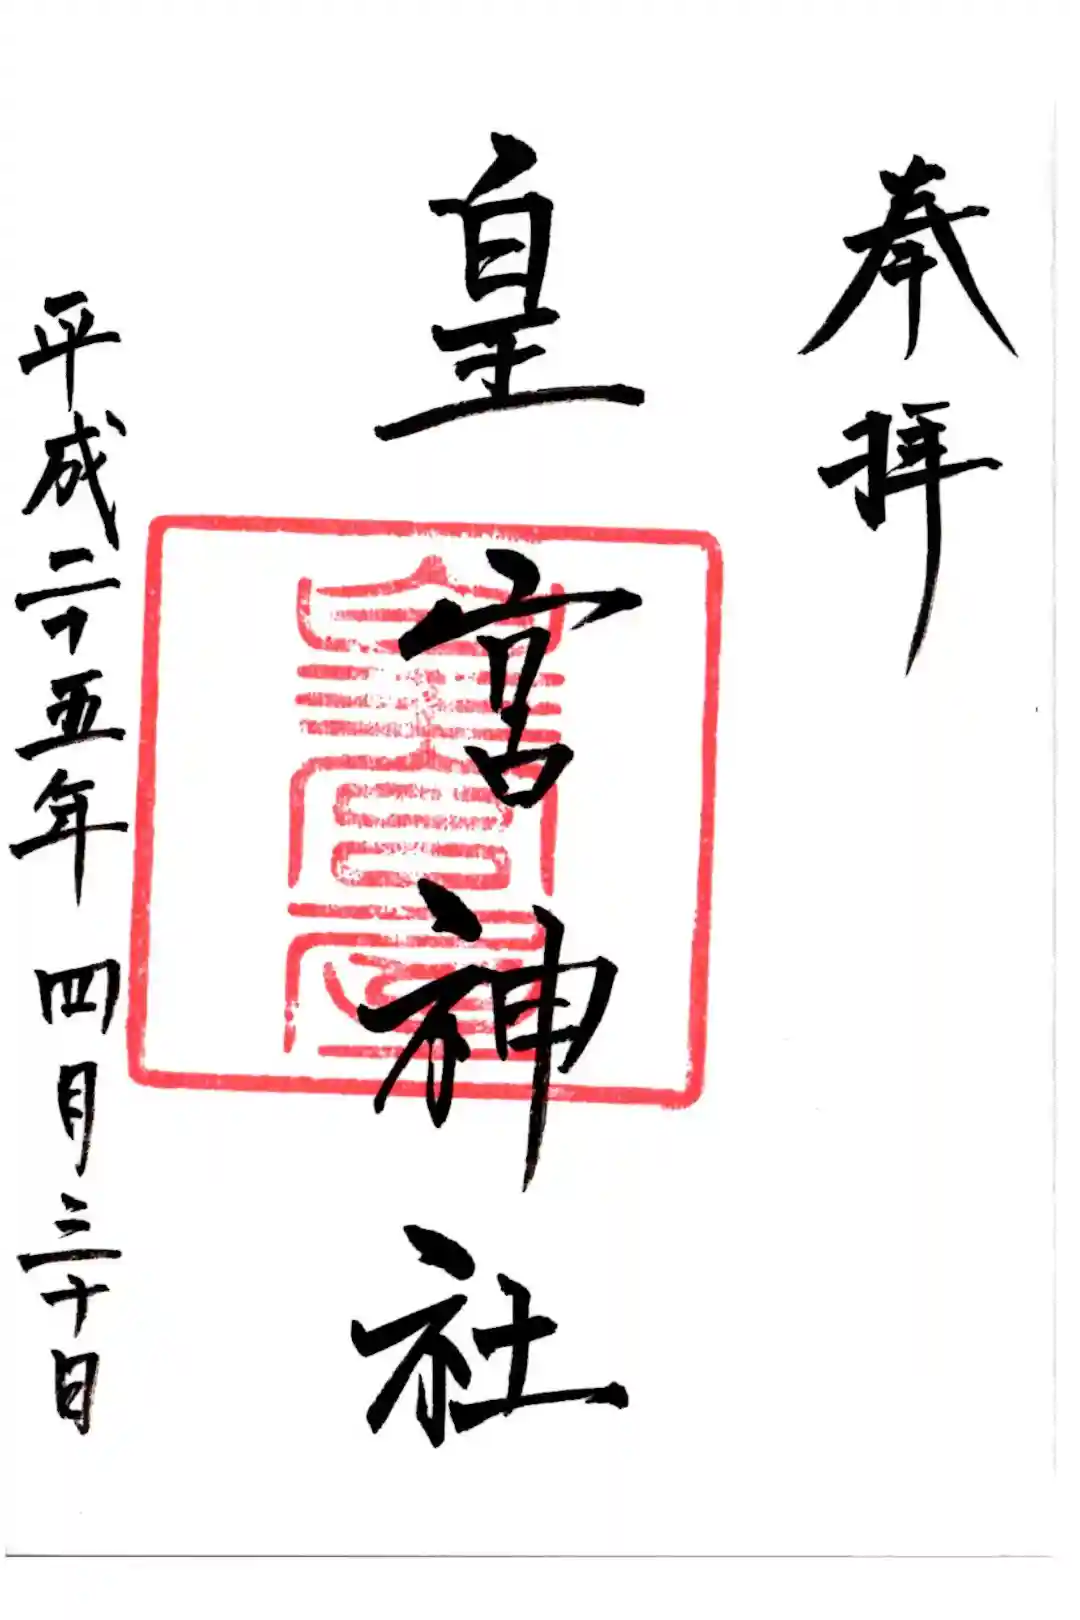 奉拝
皇宮神社
平成二十五年四月三十日